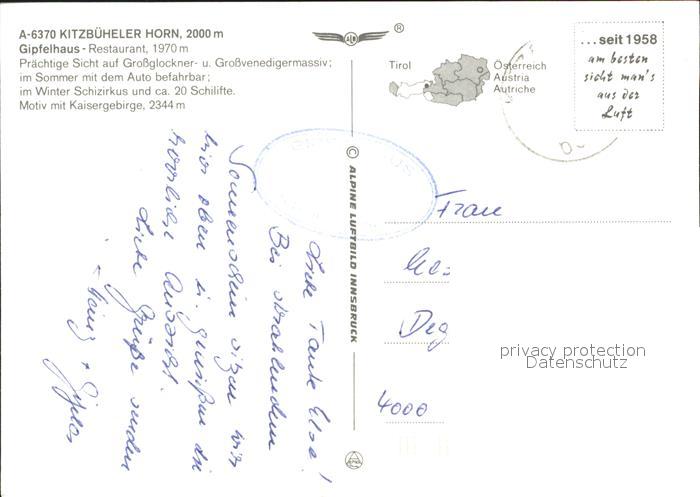 A-6370 KITZBÜHELER HORN, 2000 m
Gipfelhaus - Restaurant, 1970 m
Prächtige Sicht auf Großglockner- u. Großvenedigermassiv;
im Sommer mit dem Auto befahrbar;
im Winter Schizirkus und ca. 20 Schilifte.
Motiv mit Kaisergebirge, 2344 m
®
Tirol
Österreich
Austria
Autriche
...seit 1958
am besten
sieht man's
aus der
Luft
© ALPINE LUFTBILD INNSBRUCK
Liebe Tante Else!
Bei strahlendem
Sonnenschein sitzen wir
hier oben u. genießen die
herrliche Aussicht.
Liebe Grüße senden
Frau
4000
privacy protection
Datenschutz